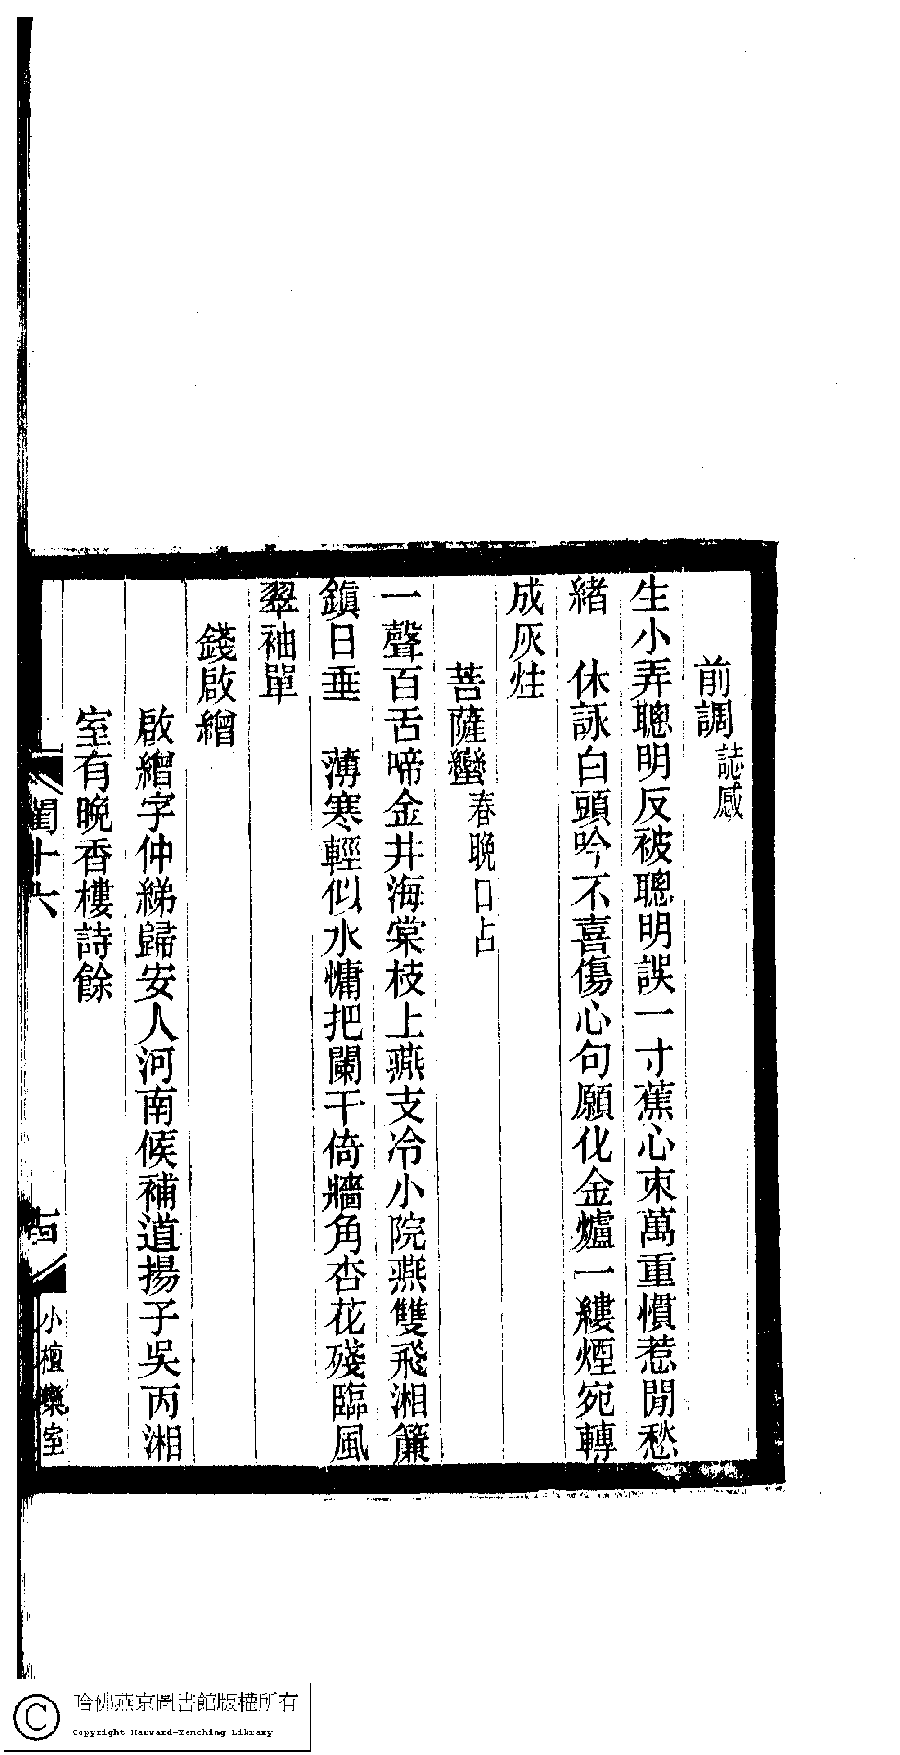 前調誌感
生小弄聰明反被聰明誤一寸蕉心束萬重慣惹閒愁
緒　休詠白頭吟不喜傷心句願化金爐一縷煙宛轉
成灰炷
菩薩蠻春晚口占
一聲百舌啼金井海棠枝上燕支冷小院燕雙飛湘簾
鎮日垂　薄寒輕似水慵把闌干倚牆角杏花殘臨風
翠袖單
錢啟繒
啟繒字仲綈歸安人河南候補道揚子吳丙湘
室有晚香樓詩餘
閨十六
十四
小檀欒室
哈佛燕京圖書館版權所有
Copyright Harvard-Yenching Library